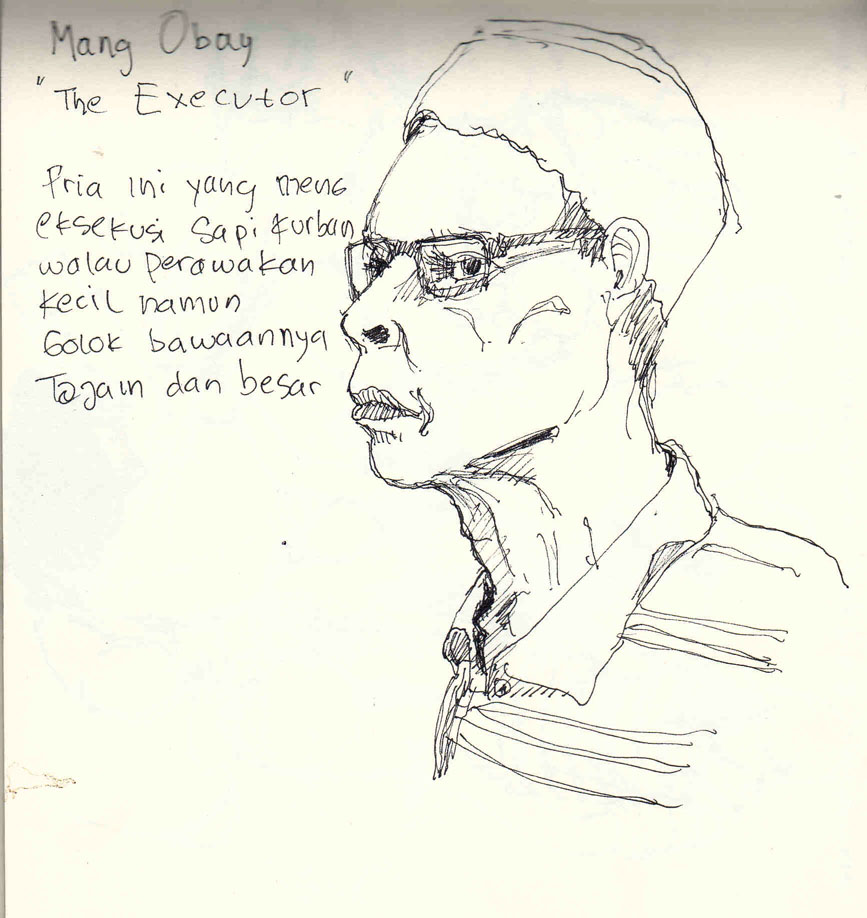 Mang Obay
"The Executor"
Pria ini yang meng
eksekusi sapi kurban
walau perawakan
kecil namun
Golok bawaannya
Tajam dan besar